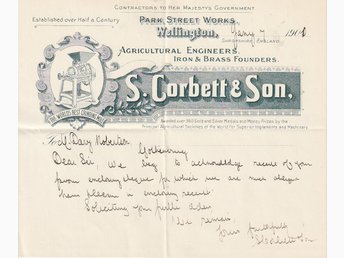 CONTRACTORS TO HER MAJESTY'S GOVERNMENT
Established over Half a Century
PARK STREET WORKS,
Wellington,
SHROPSHIRE, ENGLAND.
7 1901
AGRICULTURAL ENGINEERS,
IRON & BRASS FOUNDERS.
S. Corbett & Son,
THE WORLD'S BEST GRINDING MILL
Awarded over 360 Gold and Silver Medals and Money Prizes by the
Principal Agricultural Societies of the World for Superior Implements and Machinery
To
Gothenburg
Dear Sir, We beg to acknowledge receipt of your
favor enclosing cheque for which we are much obliged
then please in enclosing receipt.
Soliciting your further orders
We remain
Yours faithfully
S Corbett & Son